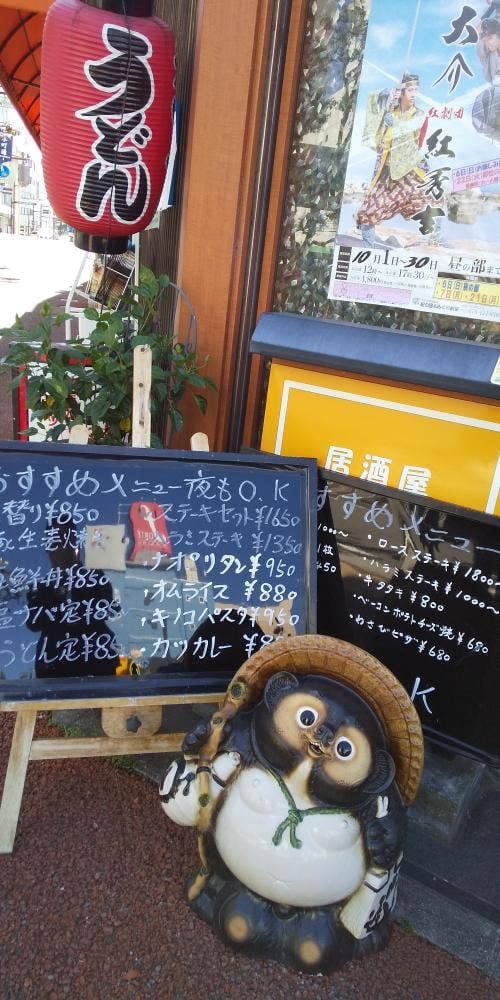 うどん
大介
紅劇団
紅秀吉
10月1日~30日 昼の部まで
12時~ 17時30分~
1,800
6日(日)昼の部
7日(月)・21日(月)
居酒屋
おすすめメニュー夜もO.K
替り¥850
生姜焼
鮮丼¥850
塩サバ定¥85
うどん定¥85
ステーキセット¥1650
ハラミステーキ¥1350
・ナポリタン¥950
・オムライス ¥880
・キノコパスタ¥950
・カツカレー ¥8
すすめメニュー
・ロースステーキ¥1800
・ハラミステーキ¥1000~
・牛タタキ¥800
・ベーコンポテトチーズ焼¥680
・わさびピザ¥680
K